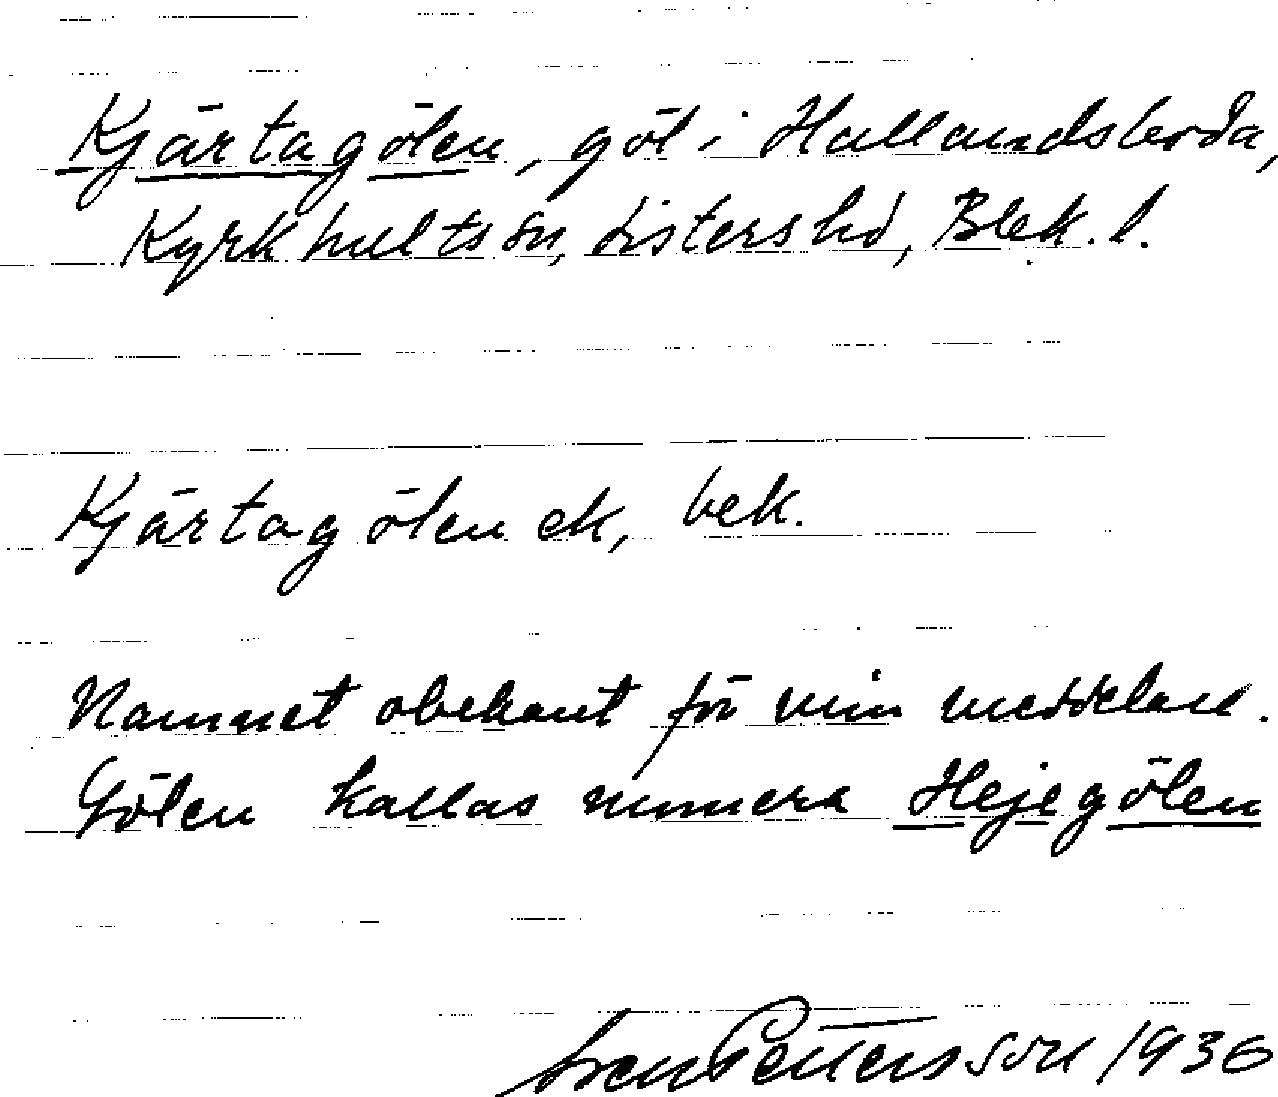 Kjärtagölen, göl i Hallandsboda,
Kyrkhults sn, Listers hd, Blek. l.
Kjärtagölen ek, bek.
Namnet obekant för min meddelare.
Gölen kallas numera Hejegölen
Sven Pettersson 1936